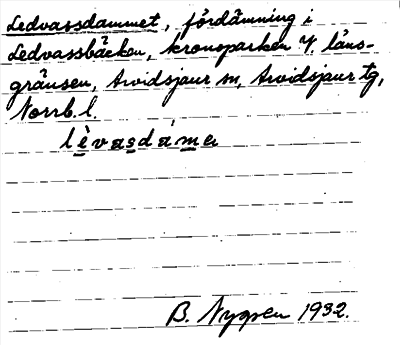 Ledvassdammet, fördämning i
Ledvassbäcken, kronoparken V. läns-
gränsen, Arvidsjaur sn, Arvidsjaur tg,
Norrb. l.
lèvasdámɐ
B. Nygren 1932.